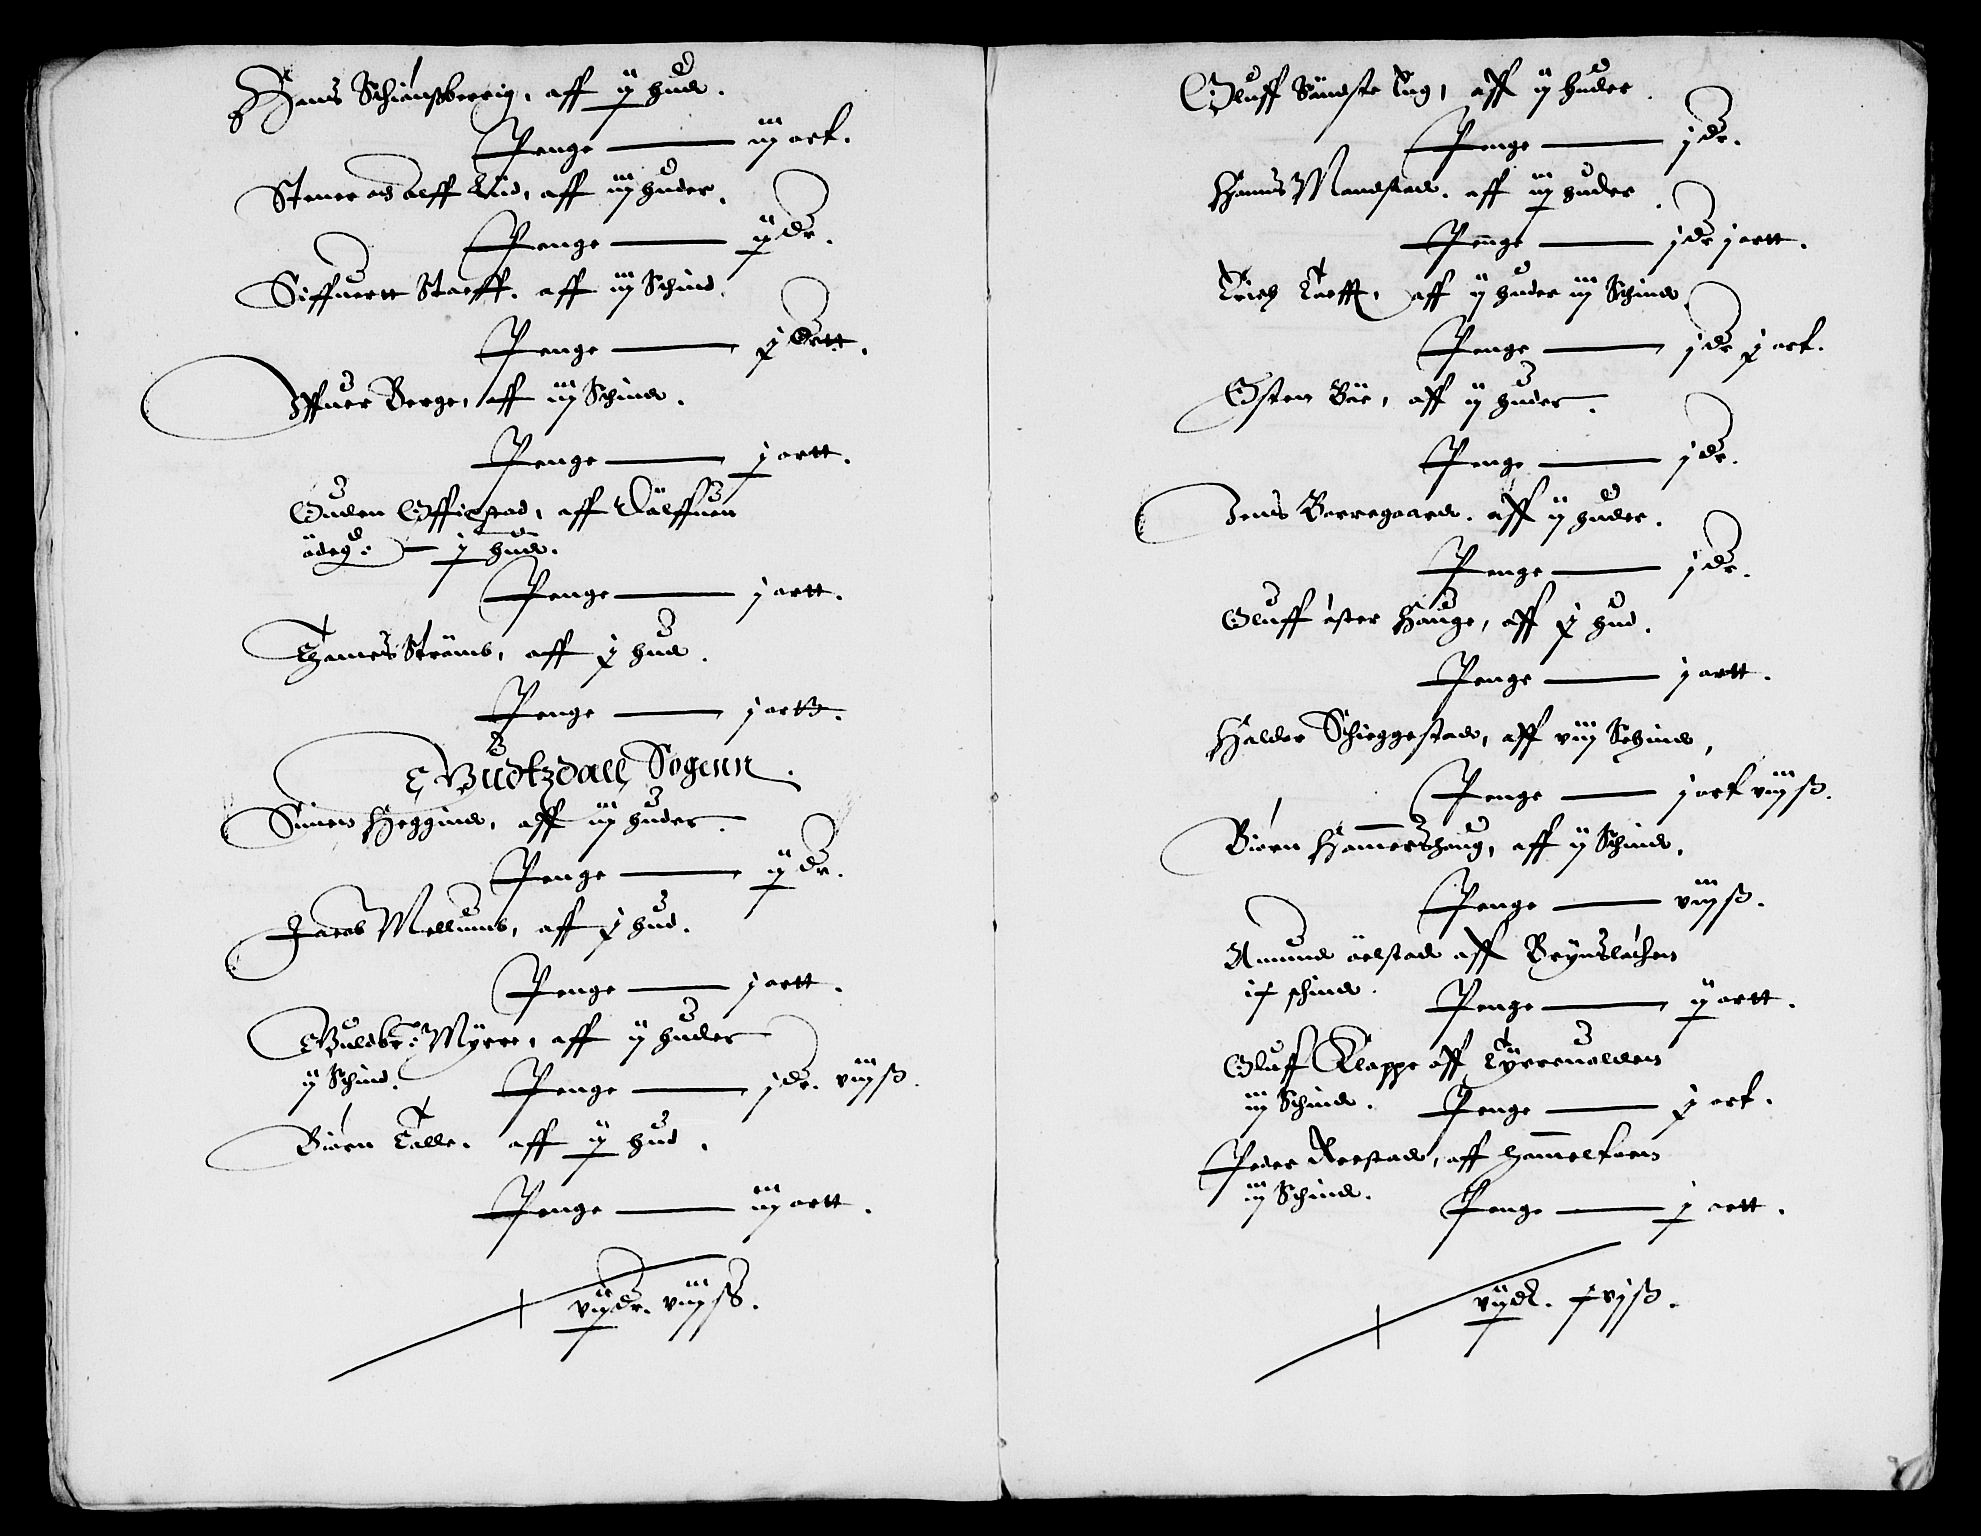 Hans Schiansberrig, aff ij hud.
Penge — iij ort.
Stener od alff Lüd, aff iiij huder.
Penge — ij dr.
Siffuertt Staeff. aff iiij Schind.
Penge — j ortt.
Iffuer Berge, aff iiij Schind.
Penge — j ortt.
Guden Effiestad, aff Dälffuen
ödeg: — j hud.
Penge — j ortt.
Thames Strömb, aff j hud.
Penge — j ortt.
Gudtzdall Sogenn.
Simen Heggind, aff iiij huder.
Penge — ij dr.
Jacob Mellumb, aff j hud.
Penge — j ortt.
Guldbr: Myrre, aff ij huder
ij Schind. Penge — j dr. viij ß.
Biørn Talle. aff ij hud.
Penge — iij ortt.
vij dr. viij ß.
Oluff Sandste aug, aff ij huder.
Penge — j dr.
Hanns Mandstad. aff iij huder
Penge — j dr j ortt.
Erich Toefft, aff ij huder iiij Schind
Penge — j dr j ort.
Osten Böe, aff ij huder.
Penge — j dr.
Jens Borregaard. aff ij huder.
Penge — j dr.
Oluff øster Hauge, aff j hud.
Penge — j ortt.
Haldor Schieggestad, aff viij Schind,
Penge — j ort viij ß.
Biørn Hammershaug, aff ij Schind.
Penge — viij ß.
Amund ölstad aff Brynslächen
ix schind. Penge — ij ortt.
Oluff Klappe aff Tyrreuolden
iij Schind. Penge — j ort.
Peder Aarstad, aff Hammelkoen
iij Schind. Penge — j ortt.
vij dl. xvj ß.